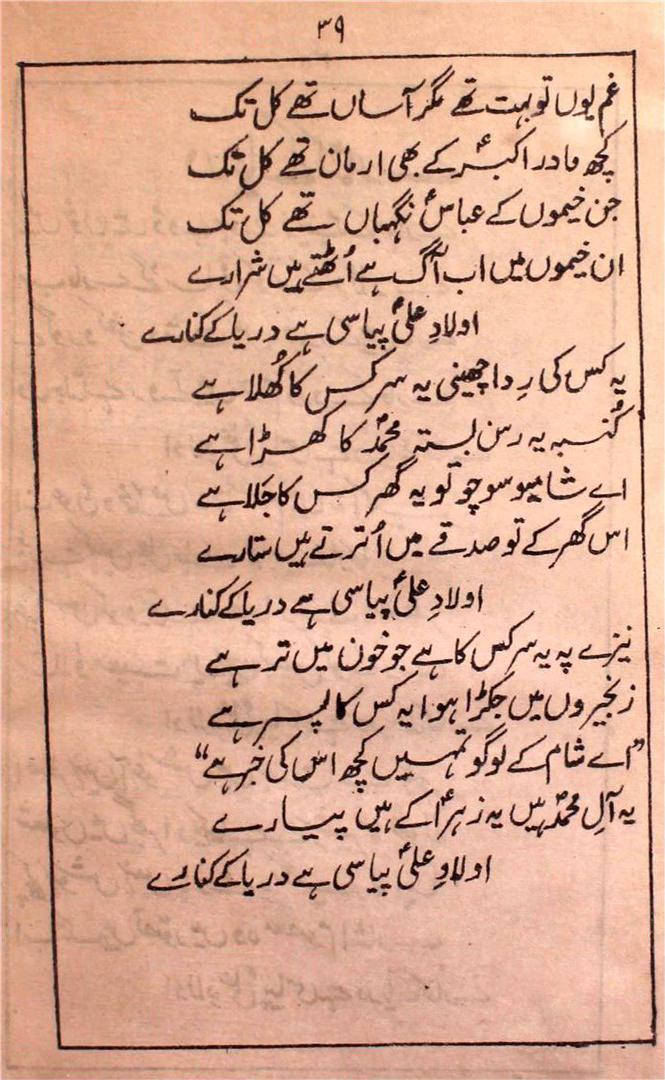 ۳۹
غم یوں تو بہت تھے مگر آساں تھے کل تک
کچھ مادر اکبرؑ کے بھی ارمان تھے کل تک
جن خیموں کے عباسؑ نگہباں تھے کل تک
ان خیموں میں اب آگ ہے اُٹھتے ہیں شرارے
اولادِ علیؑ پیاسی ہے دریا کے کنارے
یہ کس کی رِدا چھینی یہ سر کس کا کُھلا ہے
کُنبہ یہ رسن بستہ محمدؐ کا کھڑا ہے
اے شامیو سوچو تو یہ گھر کس کا جَلا ہے
اس گھر کے تو صدقے میں اُترتے ہیں ستارے
اولادِ علیؑ پیاسی ہے دریا کے کنارے
نیزے پہ یہ سر کس کا ہے جو خون میں تر ہے
زنجیروں میں جکڑا ہوا یہ کس کا پسر ہے
"اے شام کے لوگو تمہیں کچھ اس کی خبر ہے"
یہ آلِ محمدؐ ہیں یہ زہراؑ کے ہیں پیارے
اولادِ علیؑ پیاسی ہے دریا کے کنارے